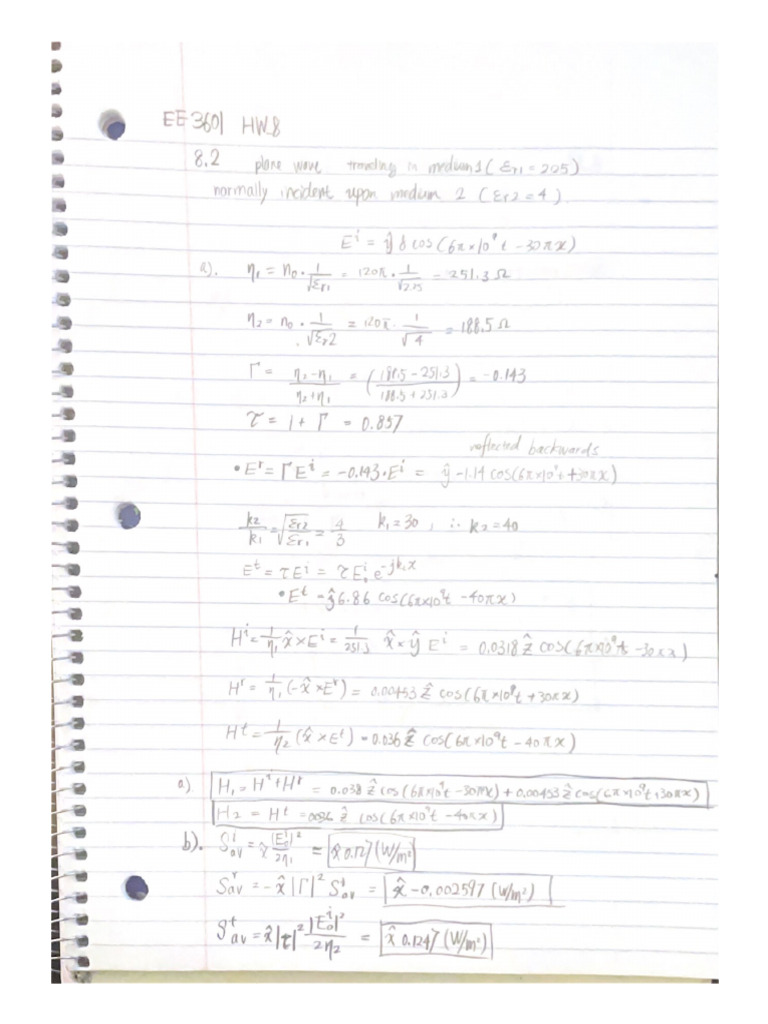 EE 3601 HW8
8.2 plane wave traveling in medium 1 ( εr1 = 2.25 )
normally incident upon medium 2 ( εr2 = 4 )
E^i = ŷ 8 cos (6π×10^9 t - 30πx)
a). η1 = η0 · 1/√εr1 = 120π · 1/√2.25 = 251.3 Ω
η2 = η0 · 1/√εr2 = 120π · 1/√4 = 188.5 Ω
Γ = (η2-η1)/(η2+η1) = ((188.5 - 251.3)/(188.5 + 251.3)) = -0.143
τ = 1 + Γ = 0.857
reflected backwards
• E^r = Γ E^i = -0.143 · E^i = ŷ -1.14 cos(6π×10^9 t + 30πx)
k2/k1 = √(εr2/εr1) = 4/3 k1 = 30 , ∴ k2 = 40
E^t = τE^i = τ E^i_0 e^-jk1x
• E^t = ŷ 6.86 cos(6π×10^9 t - 40πx)
H^i = 1/η1 x̂ × E^i = 1/251.3 x̂ × ŷ E^i = 0.0318 ẑ cos(6π×10^9 t - 30πx)
H^r = 1/η1 (-x̂ × E^r) = 0.00453 ẑ cos(6π×10^9 t + 30πx)
H^t = 1/η2 (x̂ × E^t) = 0.036 ẑ cos(6π×10^9 t - 40πx)
a) H1 = H^i + H^r = 0.038 ẑ cos (6π×10^9 t - 30πx) + 0.00453 ẑ cos(6π×10^9 t + 30πx)
H2 = H^t = 0.036 ẑ cos(6π×10^9 t - 40πx)
b). S^i_av = x̂ |E^i_0|²/2η1 = x̂ 0.127 (W/m²)
S^r_av = -x̂ |Γ|² S^i_av = x̂ -0.002597 (W/m²)
S^t_av = x̂ |τ|² |E^i_0|²/2η2 = x̂ 0.1247 (W/m²)